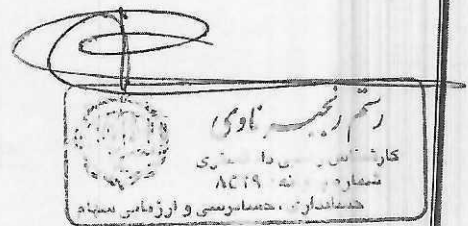 رستم رنجبر ناوی
کارشناس رسمی دادگستری
شماره پروانه: ۸۴۱۹
حسابداری، حسابرسی و ارزیابی سهام